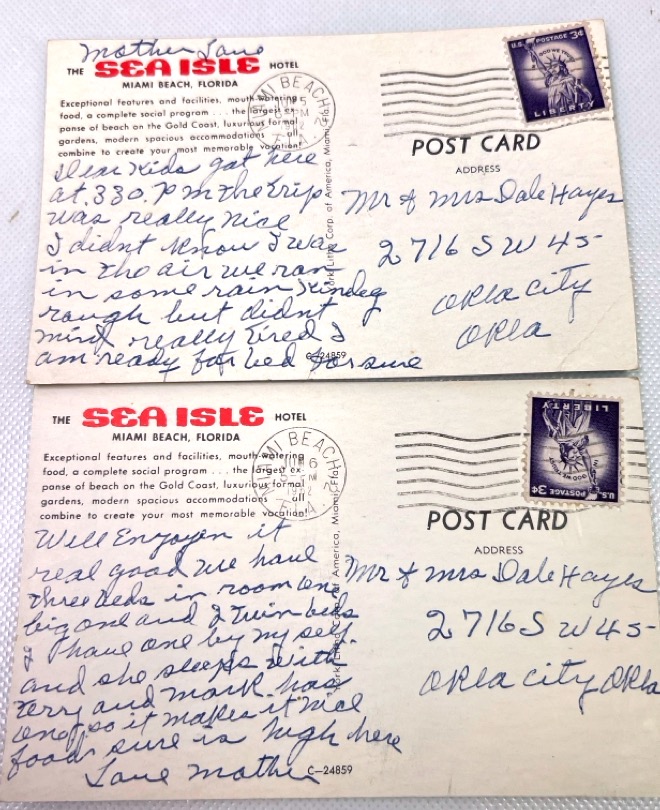 Mother Love
THE SEA ISLE HOTEL
MIAMI BEACH, FLORIDA
Exceptional features and facilities, mouth-watering
food, a complete social program . . . the largest ex-
panse of beach on the Gold Coast, luxurious formal
gardens, modern spacious accommodations all
combine to create your most memorable vacation!
Dear Kids got here
at 330. P m the trip
was really nice
I didnt know I was
in the air we ran
in some rain kindeg
rough but didnt
mind really tired I
am ready for bed for sure
C-24859
Litho Corp. of America, Miami, Fla.
MIAMI BEACH
5
PM
FLA
U.S. POSTAGE 3¢
IN GOD WE TRUST
LIBERTY
POST CARD
ADDRESS
Mr & Mrs Dale Hayes
2716 S W 45
Okla City
Okla
THE SEA ISLE HOTEL
MIAMI BEACH, FLORIDA
Exceptional features and facilities, mouth-watering
food, a complete social program . . . the largest ex-
panse of beach on the Gold Coast, luxurious formal
gardens, modern spacious accommodations all
combine to create your most memorable vacation!
Well Enjoyen it
real good we have
three beds in room one
big one and 2 twin beds
I have one by my self
and she sleeps with
Terry and mark has
one so it makes it nice
food sure is high here
Love Mother
C-24859
Litho Corp. of America, Miami, Fla.
MIAMI BEACH
6
PM
FLA
U.S. POSTAGE 3¢
IN GOD WE TRUST
LIBERTY
POST CARD
ADDRESS
Mr & Mrs Dale Hayes
2716 S W 45
Okla City Okla